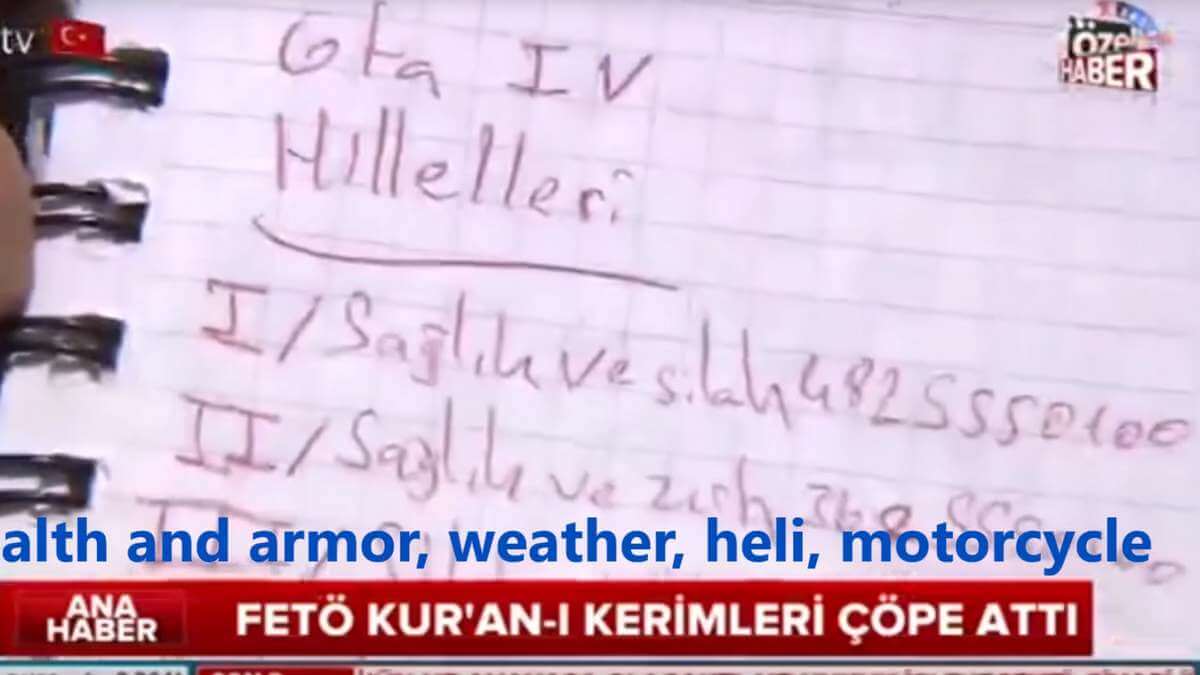 tv
ÖZEL
HABER
Gta IV
Hılleleri
I/Sağlık ve silah 4825550100
II/Sağlık ve zırh 362 555
alth and armor, weather, heli, motorcycle
ANA
HABER
FETÖ KUR'AN-I KERİMLERİ ÇÖPE ATTI